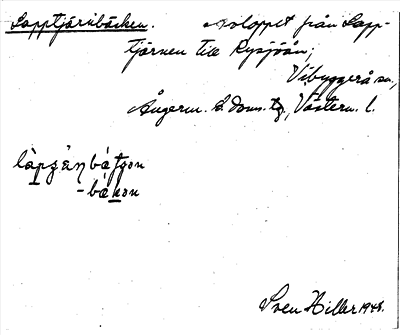 Lapptjärnbäcken. Avloppet från Lapp-
tjärnen till Rysjöån;
Vibyggerå sn.,
Ångerm. s. doms. tg., Västern. l.
-bäkon
Sven Hiller 1948.